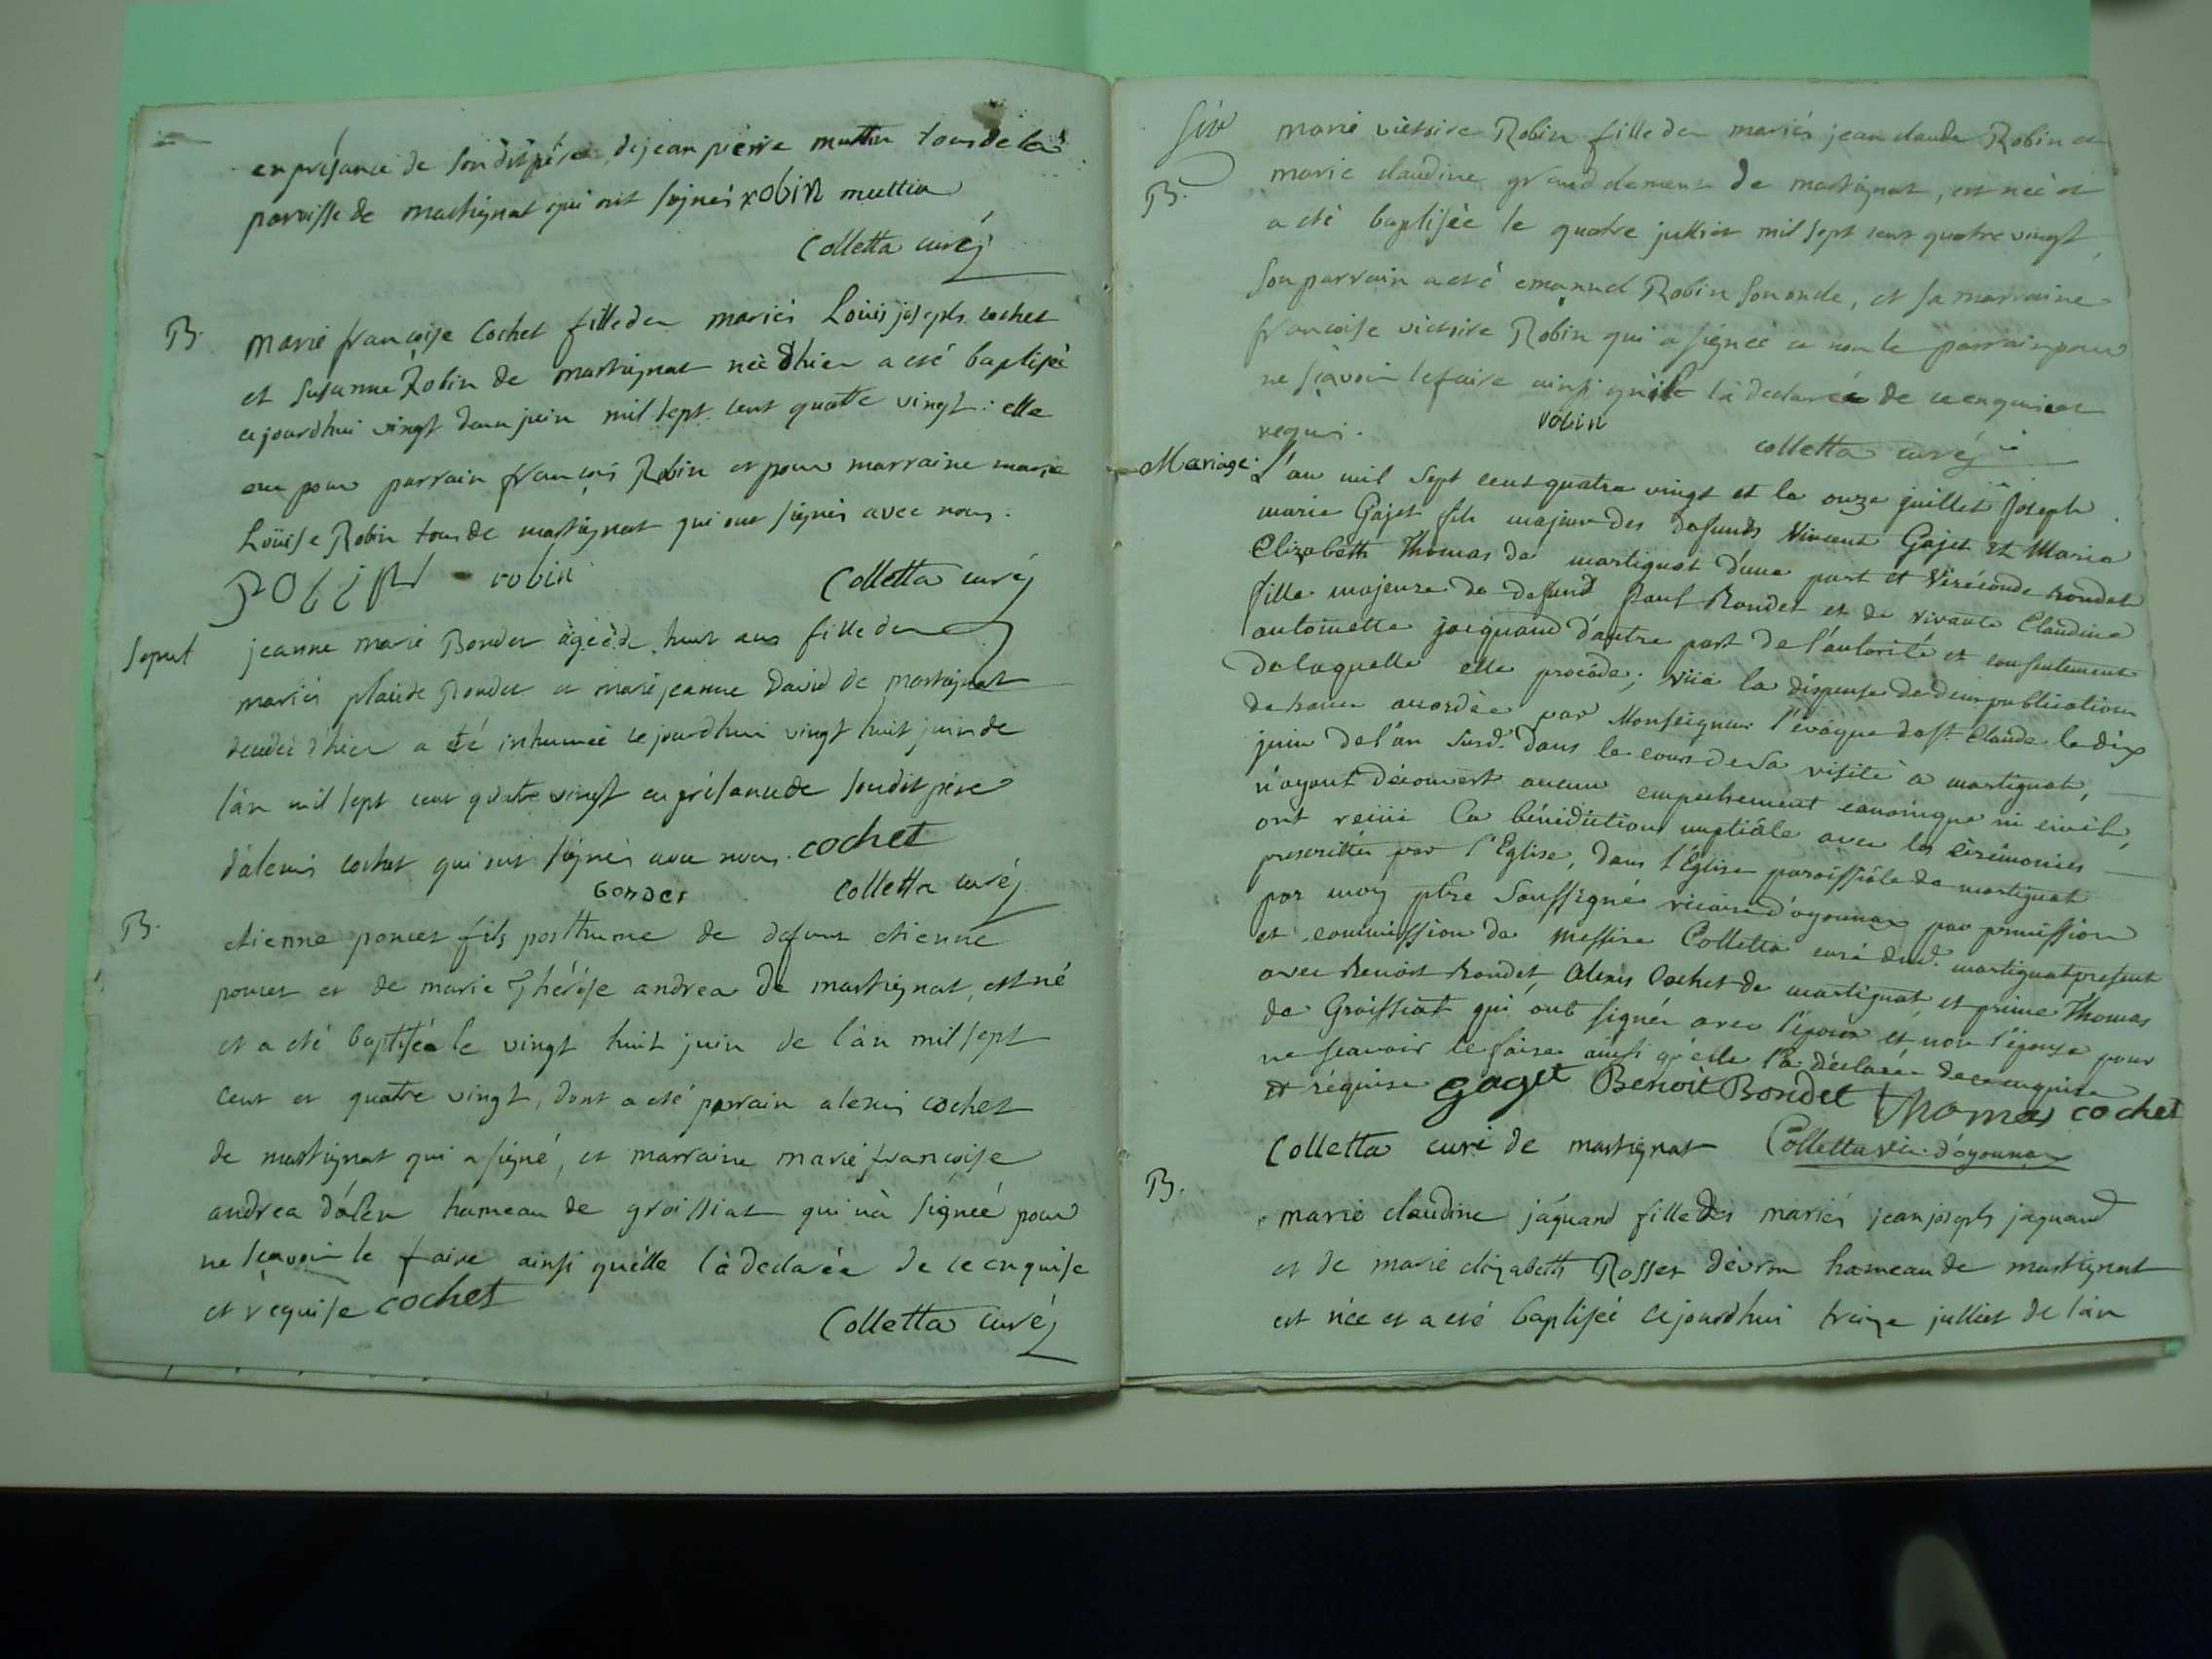 en présance de son dit père de jean pierre muttin tous de la
paroisse de martignat qui ont signés robin muttin
Colletta curé
B. marie françoise Cochet fille des mariés Loüis joseph cochet
et susanne Robin de martignat née d'hier a eté baptisée
cejourdhui vingt deux juin mil sept cent quatre vingt : elle
eue pour parrain françois Robin et pour marraine marie
Loüise Robin tous de martignat qui ont signés avec nous.
robin robin Colletta curé
Sepul jeanne marie Bondet âgée de huit ans fille des
mariés placide Bondet et marie jeanne David de martignat
decedée d'hier a eté inhumée ce jourdhui vingt huit juin de
l'an mil sept cent quatre vingt en présance de son dit père
d'alexis cochet qui ont signés avec nous. cochet
bondet Colletta curé
B. etienne poncet fils posthume de defunt etienne
poncet et de marie Thérèse andrea de martignat, est né
et a eté baptisée le vingt huit juin de l'an mil sept
cent et quatre vingt, dont a eté parrain alexis cochet
de martignat qui a signé, et marraine marie françoise
andrea d'alex hameau de groissiat qui n'a signée pour
ne sçavoir le faire ainsi qu'elle l'a declarée de ce enquise
et requise cochet
Colletta curé
Six marie victoire Robin fille des mariés jean claude Robin et
B. marie claudine grand clement de martignat, est née et
a eté baptisée le quatre julliet mil sept cent quatre vingt
son parrain a eté emanuel Robin son oncle, et sa marraine
francoise victoire Robin qui a signée et non le parrain pour
ne sçavoir le faire ainsi qu'il l'a declaré de ce enquis et
requis. robin
colletta curé
Mariage. L'an mil sept cent quatre vingt et le onze juillet Joseph
marie Gajet fils majeur des defunts Vincent Gajet et Marie
Elizabeth Thomas de martignat d'une part et Véréconde Bondet
fille majeure de defund Paul Bondet et de vivante Claudine
antoinette jacquand d'autre part de l'autorité et consentement
de laquelle elle procède; vüe la dispense de deux publications
de bancs accordée par Monseigneur l'évêque de st. Claude le dix
juin de l'an susd. dans le cours de sa visite a martignat,
n'ayant découvert aucun empechement canonique ni civil,
ont reçüe la bénédiction nuptiale avec les cérémonies
prescrittes par l'Eglise, dans l'Eglise paroissiale de martignat
par moy ptre soussigné vicaire d'oyonnax par permission
et commission de messire Colletta curé dud. martignat present
avec Benoit Bondet, Alexis Cochet de martignat, et prime Thomas
de Groissiat qui ont signés avec l'époux et non l'épouse pour
ne sçavoir le faire ainsi qu'elle l'a déclarée de ce enquise
et réquise gaget Benoit Bondet thomas cochet
Colletta curé de martignat Colletta vic. d'oyonnax
B. marie claudine jaquand fille des mariés jean joseph jaquand
et de marie elizabeth Rosset d'evron hameau de martignat
est née et a eté baptisée cejourdhui treize julliet de l'an